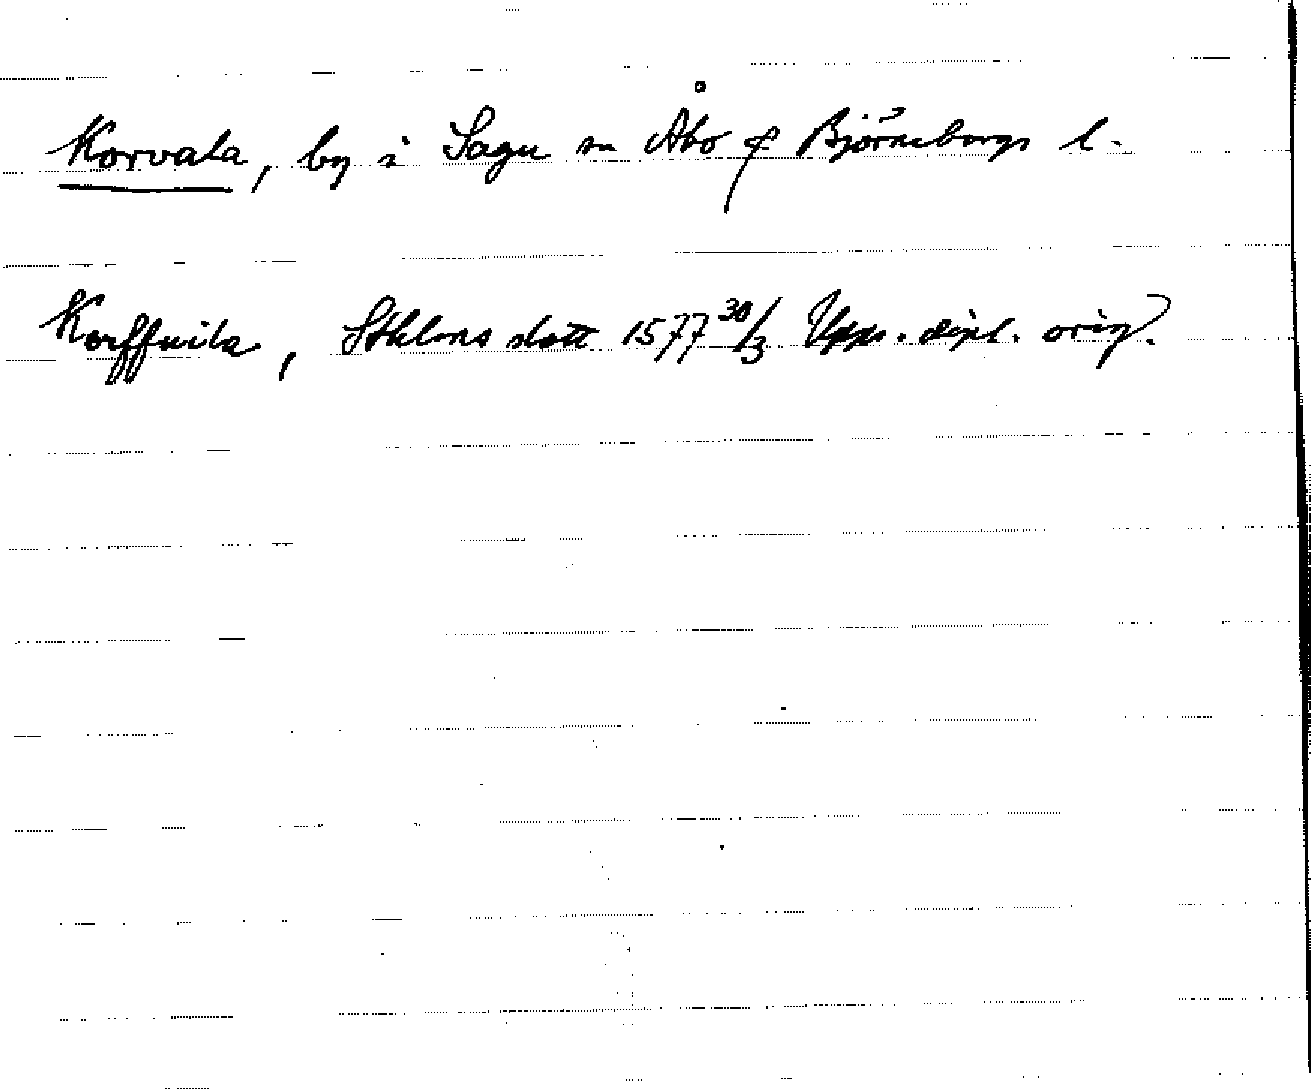 Korvala, by i Sagu sn Åbo & Björneborgs l.
Korffuila, Sthlms slott 1577 30/3 Upps. dipl. orig.